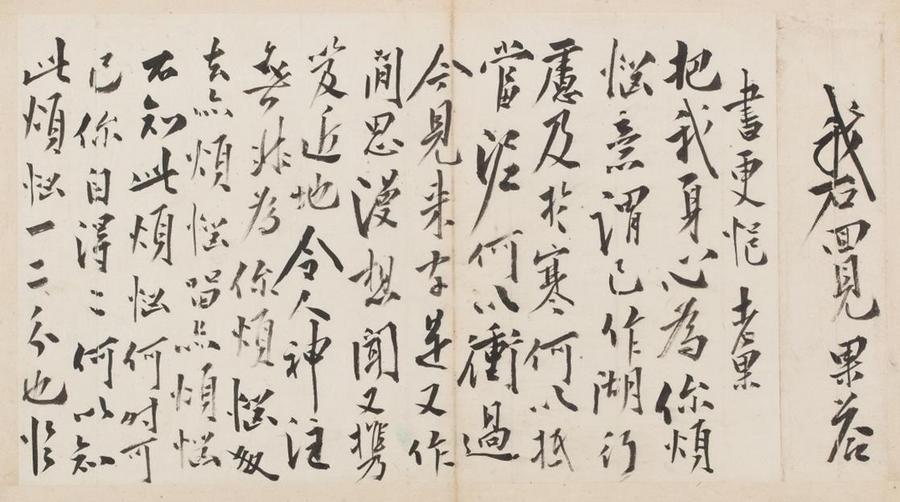 我石回見 果�荅
書更悒 老果
把我身心為你煩
惱意謂已作湖行
慮及於寒何以抵
當泥何以衝過
今見来字並又作
閒思漫想聞又携
笈近地令人神注
無非為你煩惱奴
去亦煩惱留亦煩惱
不知此煩惱何时可
已你自得之何以知
此煩惱一二分也臨